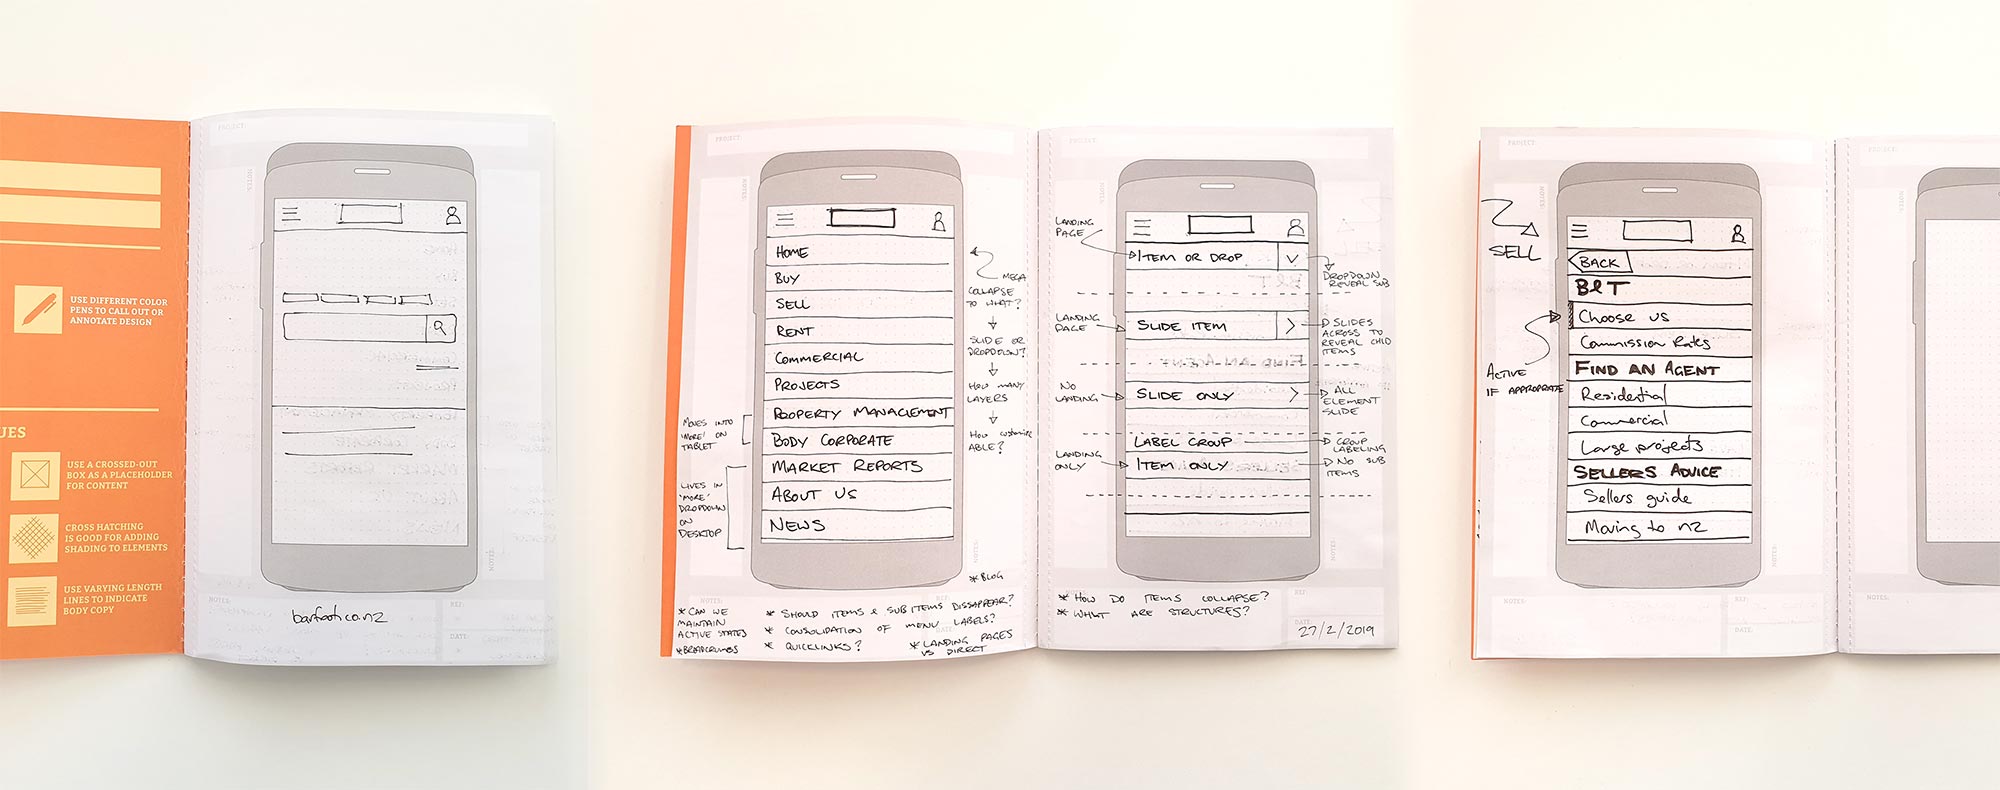 PROJECT:
NOTES:
USE DIFFERENT COLOR
PENS TO CALL OUT OR
ANNOTATE DESIGN
UES
USE A CROSSED-OUT
BOX AS A PLACEHOLDER
FOR CONTENT
CROSS HATCHING
IS GOOD FOR ADDING
SHADING TO ELEMENTS
USE VARYING LENGTH
LINES TO INDICATE
BODY COPY
NOTES:
NOTES:
REF:
DATE:
barfoot.co.nz
PROJECT:
NOTES:
HOME
BUY
SELL
RENT
COMMERCIAL
PROJECTS
PROPERTY MANAGEMENT
BODY CORPORATE
MARKET REPORTS
ABOUT US
NEWS
MOVES INTO
'MORE' ON
TABLET
LIVES IN
'MORE'
DROPDOWN
ON
DESKTOP
MEGA
COLLAPSE
TO WHAT?
SLIDE OR
DROPDOWN?
HOW MANY
LAYERS
HOW CUSTOMIZE
ABLE?
NOTES:
* BLOG
NOTES:
* CAN WE
MAINTAIN
ACTIVE STATES
* BREADCRUMBS
* SHOULD ITEMS & SUB ITEMS DISSAPEAR?
* CONSOLIDATION OF MENU LABELS?
* QUICKLINKS?
* LANDING PAGES
VS DIRECT
PROJECT:
NOTES:
LANDING
PAGE
ITEM OR DROP
DROPDOWN
REVEAL SUB
LANDING
PAGE
SLIDE ITEM
SLIDES
ACROSS TO
REVEAL CHILD
ITEMS
NO
LANDING
SLIDE ONLY
ALL
ELEMENT
SLIDE
LABEL GROUP
GROUP
LABELING
LANDING
ONLY
ITEM ONLY
NO SUB
ITEMS
NOTES:
* HOW DO ITEMS COLLAPSE?
* WHAT ARE STRUCTURES?
REF:
DATE:
27/2/2019
PROJECT:
NOTES:
SELL
BACK
B&T
Choose us
Commission Rates
FIND AN AGENT
Residential
Commercial
Large projects
SELLERS ADVICE
Sellers guide
Moving to nz
ACTIVE
IF APPROPRIATE
NOTES:
NOTES:
REF:
DATE:
PROJECT:
NOTES:
NOTES: